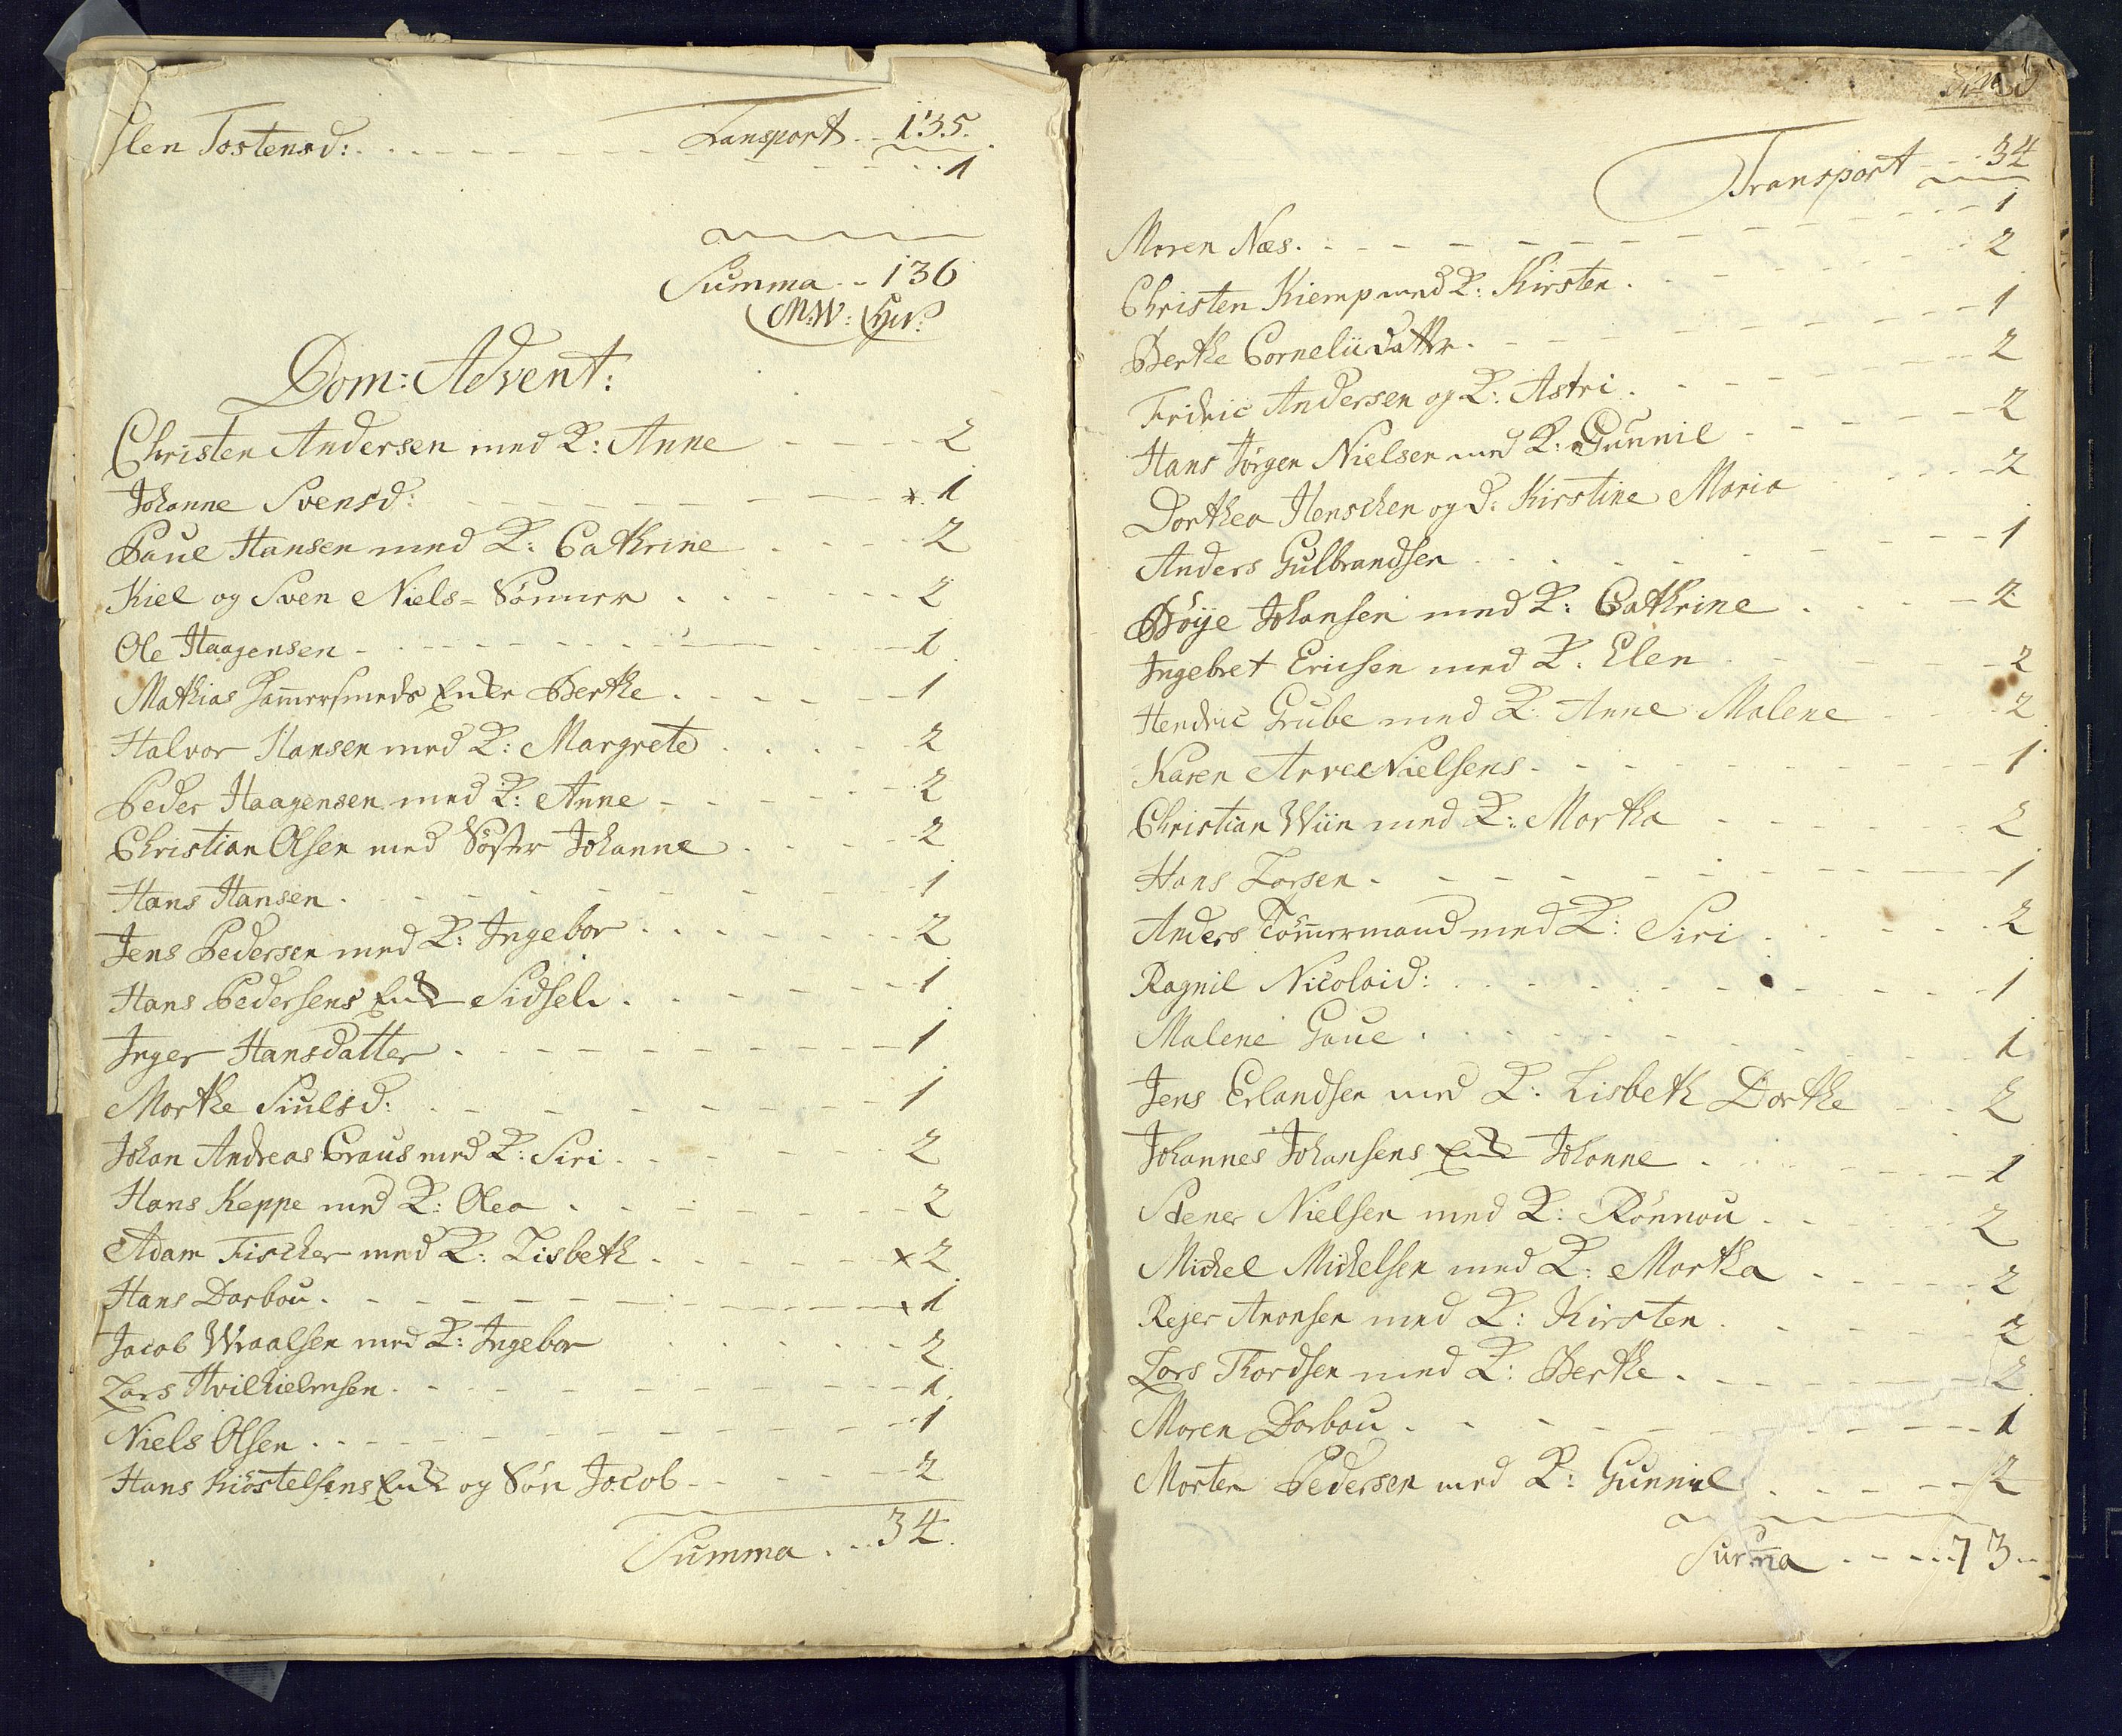 Transport - - 135.
Elen Tostensd: - - - - 1
Summa - - 136
M:W:
Dom: Advent:
Christen Andersen med K: Anne - - - - 2
Johanne Svensd: - - - - x 1
Paul Hansen med K: Cathrine - - - - 2
Kiel og Sven Niels=Sönner - - - - 2
Ole Haagensen - - - - 1
Mathias Hamersmeds Enke Berthe - - - - 1
Halvor Hansen med K: Margrete - - - - 2
Peder Haagensen med K: Anne - - - - 2
Christian Olsen med Söster Johanne - - - - 2
Hans Hansen - - - - 1
Jens Pedersen med K: Ingebor - - - - 2
Hans Pedersens Enke Sidsel - - - - 1
Inger Hansdatter - - - - 1
Marthe Siulsd: - - - - 1
Johan Andreas Craus med K: Siri - - - - 2
Hans Keppe med K: Olea - - - - 2
Adam Fischer med K: Lisbeth - - - - x 2
Hans Darbou - - - - x 1
Jacob Wraalsen med K: Ingebor - - - - 2
Lars Hvilhielmsen - - - - 1
Niels Olsen - - - - 1
Hans Kiöstelsens Enke og Sön Jacob - - - - 2
Summa - - 34.
Transport - - 34
Maren Næs - - - - 1
Christen Kiemp med K: Kirsten - - - - 2
Berthe Cornelii datter - - - - 1
Fridric Andersen og K: Astri - - - - 2
Hans Jörgen Nielsen med K: Gunnil - - - - 2
Dorthea Henschen og D: Kirstine Maria - - - - 2
Anders Gulbrandsen - - - - 1
Böije Johansen med K: Cathrine - - - - 2
Ingebret Ericsen med K: Elen - - - - 2
Hendric Grube med K: Anne Malene - - - - 2
Karen Arve Nielsens - - - - 1
Christian Wiin med K: Martha - - - - 2
Hans Larsen - - - - 1
Anders Tömmermand med K: Siri - - - - 2
Ragnil Nicolaid: - - - - 1
Malene Gaue - - - - 1
Jens Erlandsen med K: Lisbeth Dorthe - - - - 2
Johannes Johansens Enke Johanne - - - - 1
Stener Nielsen med K: Rönnou - - - - 2
Michel Michelsen med K: Martha - - - - 2
Rejer Aronsen med K: Kirsten - - - - 2
Lars Thordsen med K: Berthe - - - - 2
Maren Darbou - - - - 1
Morten Pedersen med K: Gunnil - - - - 2
Summa - - - - 73 - -